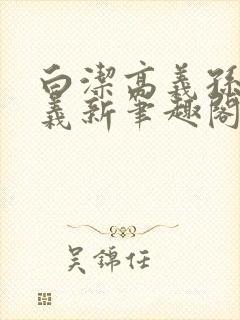 白潔高義孫
義新筆趣閣
吳錦任